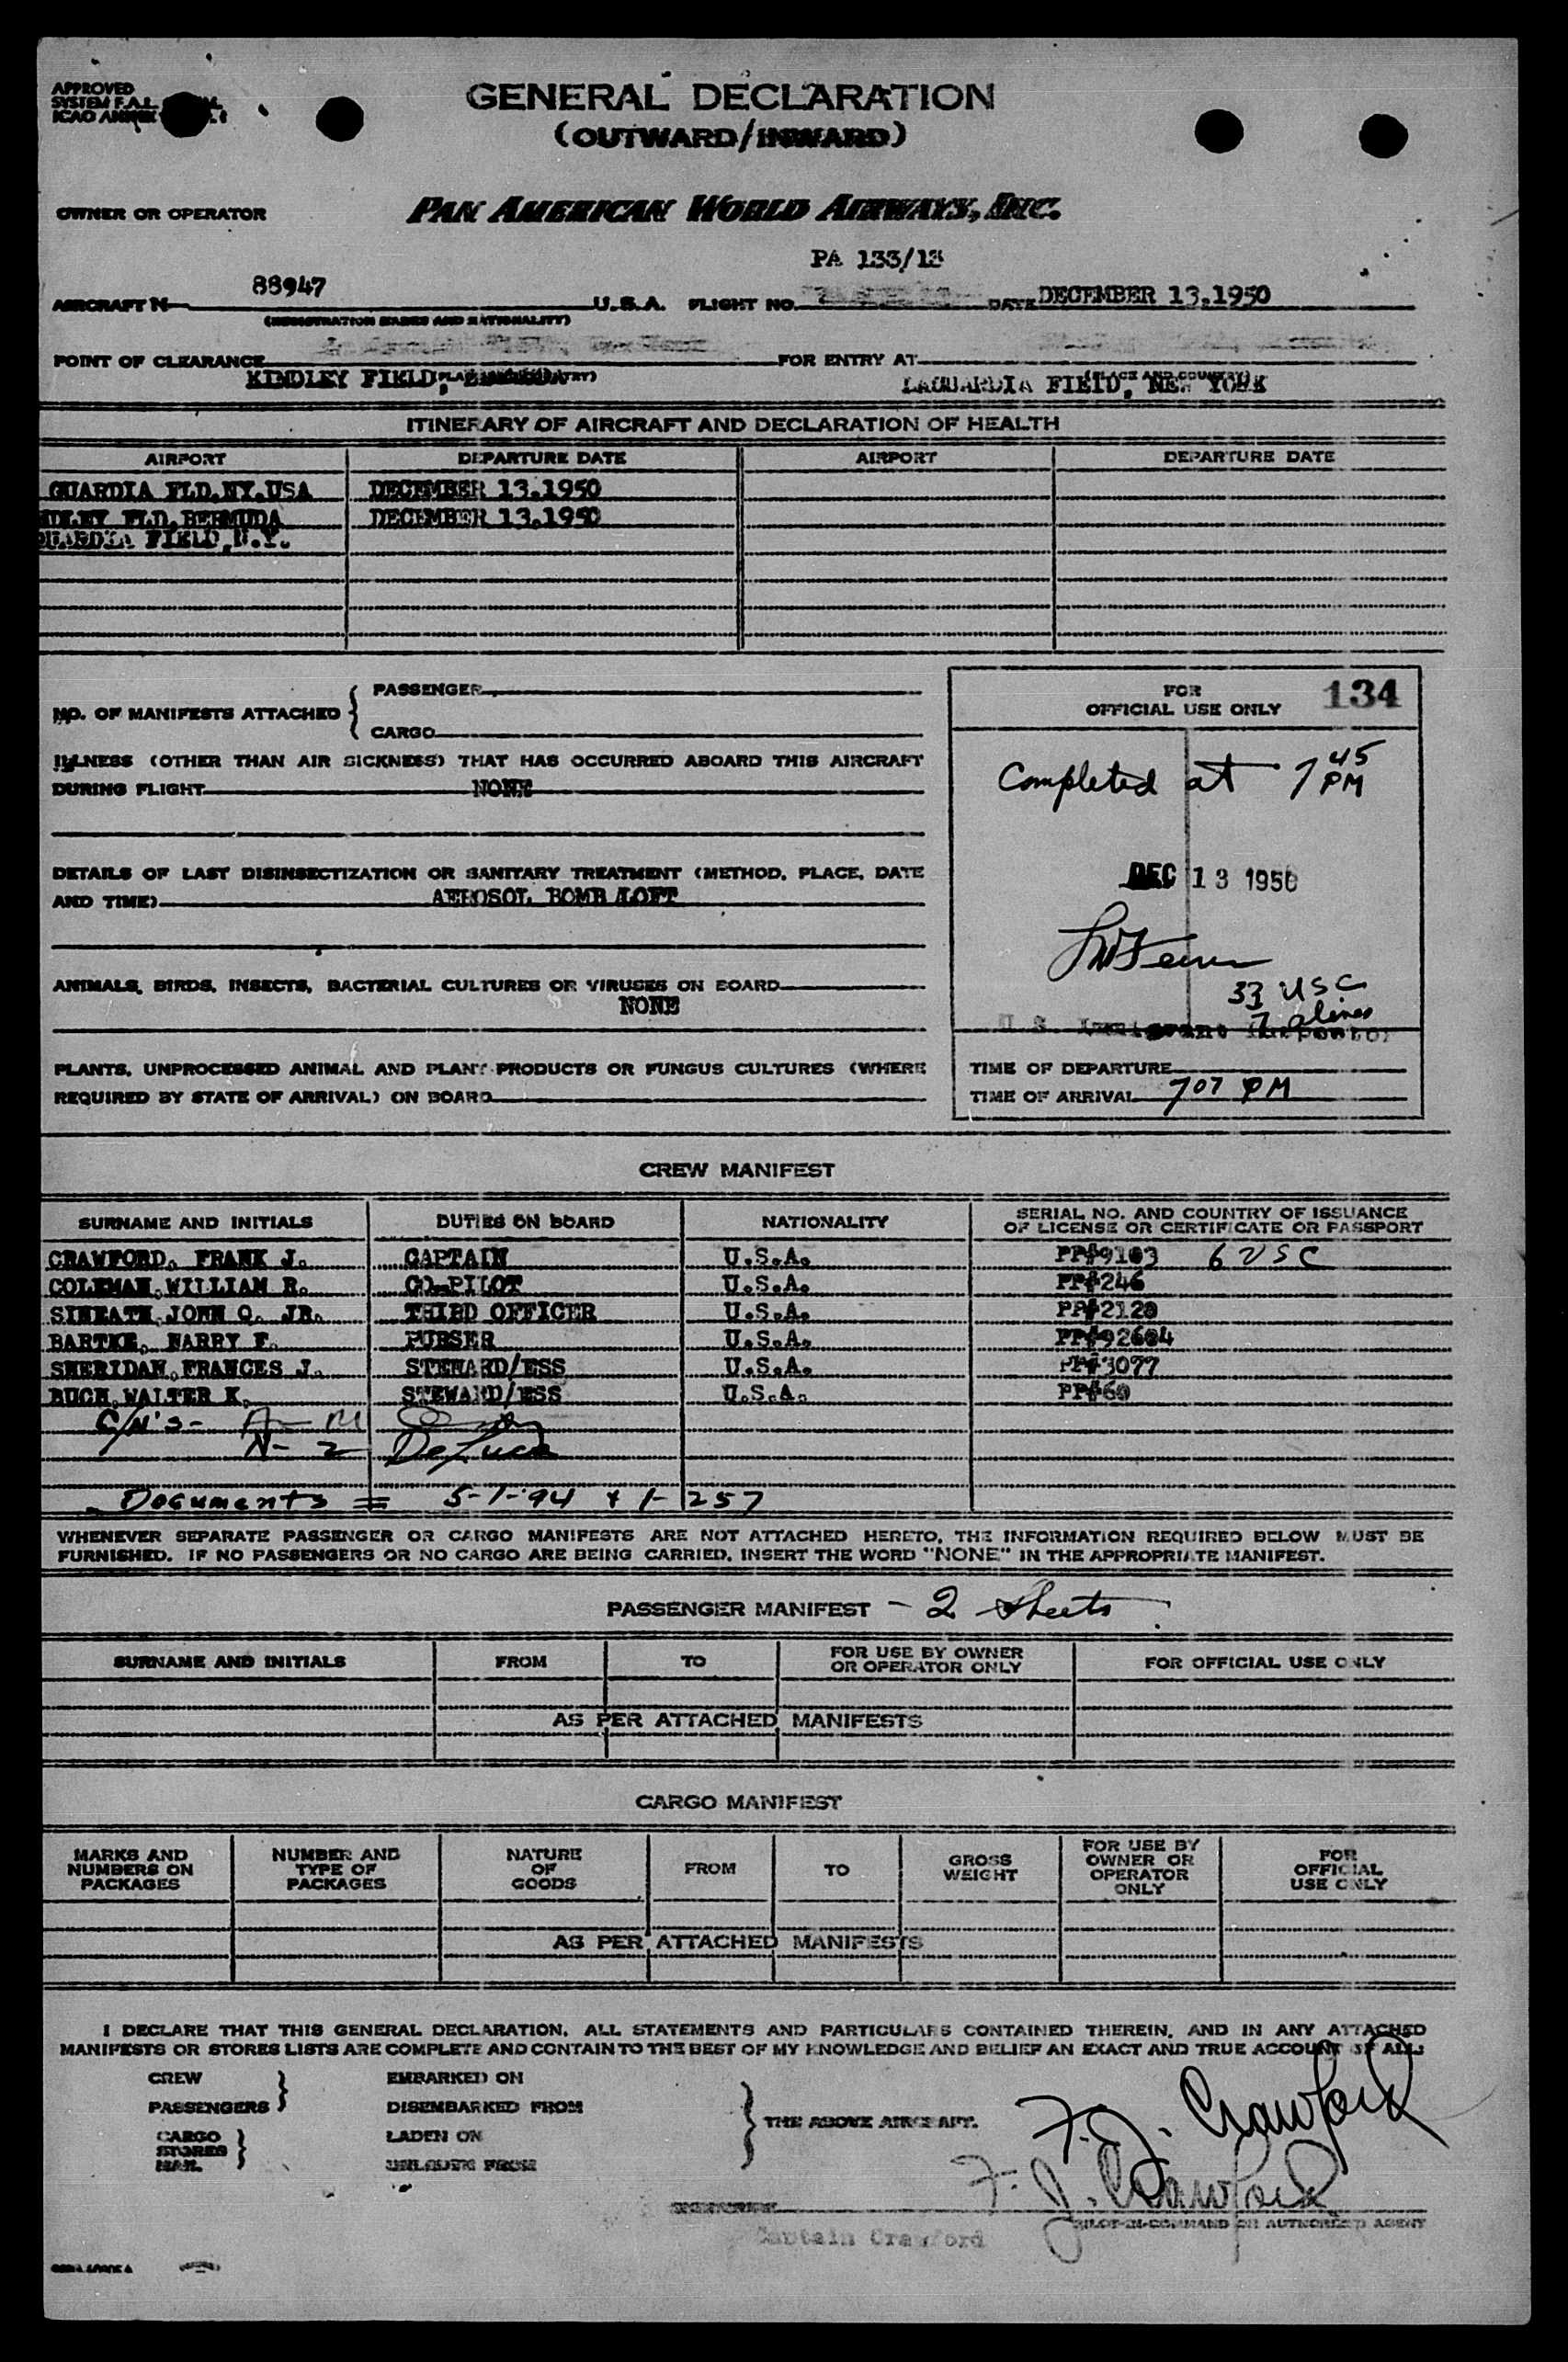 APPROVED
SYSTEM F.A.L.
ICAO ANNEX
GENERAL DECLARATION
(OUTWARD/INWARD)
OWNER OR OPERATOR PAN AMERICAN WORLD AIRWAYS, INC.
PA 133/13
AIRCRAFT N 88947 U.S.A. FLIGHT NO. DATE DECEMBER 13.1950
(REGISTRATION MARKS AND NATIONALITY)
POINT OF CLEARANCE FOR ENTRY AT
KINDLEY FIELD, BERMUDA LAGUARDIA FIELD, NEW YORK
(PLACE AND COUNTRY) (PLACE AND COUNTRY)
ITINERARY OF AIRCRAFT AND DECLARATION OF HEALTH
AIRPORT DEPARTURE DATE AIRPORT DEPARTURE DATE
GUARDIA FLD.NY.USA DECEMBER 13.1950
NDLEY FLD.BERMUDA DECEMBER 13.1950
GUARDIA FIELD,N.Y.
NO. OF MANIFESTS ATTACHED { PASSENGER
CARGO
FOR
OFFICIAL USE ONLY 134
ILLNESS (OTHER THAN AIR SICKNESS) THAT HAS OCCURRED ABOARD THIS AIRCRAFT
DURING FLIGHT NONE
Completed at 7 45 PM
DETAILS OF LAST DISINSECTIZATION OR SANITARY TREATMENT (METHOD, PLACE, DATE
AND TIME) AEROSOL BOMB ALOFT
DEC 13 1950
ANIMALS, BIRDS, INSECTS, BACTERIAL CULTURES OR VIRUSES ON BOARD
NONE
33 USC
7 aliens
U.S. Immigrant Inspector
PLANTS, UNPROCESSED ANIMAL AND PLANT PRODUCTS OR FUNGUS CULTURES (WHERE
REQUIRED BY STATE OF ARRIVAL) ON BOARD
TIME OF DEPARTURE
TIME OF ARRIVAL 707 PM
CREW MANIFEST
SURNAME AND INITIALS DUTIES ON BOARD NATIONALITY SERIAL NO. AND COUNTRY OF ISSUANCE
OF LICENSE OR CERTIFICATE OR PASSPORT
CRAWFORD, FRANK J. CAPTAIN U.S.A. PP#9103 6 USC
COLEMAN,WILLIAM R. CO-PILOT U.S.A. PP#246
SINEATH,JOHN Q. JR. THIRD OFFICER U.S.A. PP#2120
BARTKE, HARRY F. PURSER U.S.A. PP#92684
SHERIDAN,FRANCES J. STEWARD/ESS U.S.A. PP#3077
BUCH,WALTER K. STEWARD/ESS U.S.A. PP#60
C/N's-
N- 2 DeLuca
Documents = 5-1-94 + 1-257
WHENEVER SEPARATE PASSENGER OR CARGO MANIFESTS ARE NOT ATTACHED HERETO, THE INFORMATION REQUIRED BELOW MUST BE
FURNISHED. IF NO PASSENGERS OR NO CARGO ARE BEING CARRIED, INSERT THE WORD "NONE" IN THE APPROPRIATE MANIFEST.
PASSENGER MANIFEST - 2 sheets
SURNAME AND INITIALS FROM TO FOR USE BY OWNER
OR OPERATOR ONLY FOR OFFICIAL USE ONLY
AS PER ATTACHED MANIFESTS
CARGO MANIFEST
MARKS AND
NUMBERS ON
PACKAGES NUMBER AND
TYPE OF
PACKAGES NATURE
OF
GOODS FROM TO GROSS
WEIGHT FOR USE BY
OWNER OR
OPERATOR
ONLY FOR
OFFICIAL
USE ONLY
AS PER ATTACHED MANIFESTS
I DECLARE THAT THIS GENERAL DECLARATION, ALL STATEMENTS AND PARTICULARS CONTAINED THEREIN, AND IN ANY ATTACHED
MANIFESTS OR STORES LISTS ARE COMPLETE AND CONTAIN TO THE BEST OF MY KNOWLEDGE AND BELIEF AN EXACT AND TRUE ACCOUNT OF ALL:
CREW EMBARKED ON
PASSENGERS DISEMBARKED FROM
THE ABOVE AIRCRAFT.
CARGO LADEN ON
STORES
MAIL UNLADEN FROM
F. J. Crawford
F. J. Crawford
SIGNATURE
PILOT-IN-COMMAND OR AUTHORIZED AGENT
Captain Crawford